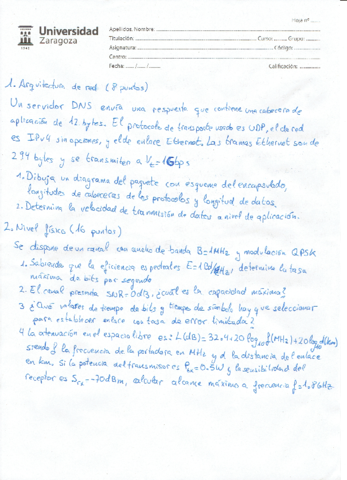 Hoja nº
Universidad
Zaragoza
1542
Apellidos, Nombre:
Titulación: Curso: Grupo:
Asignatura: Código:
Centro:
Fecha: / / Calificación:
1. Arquitectura de red (8 puntos)
Un servidor DNS envía una respuesta que contiene una cabecera de
aplicación de 12 bytes. El protocolo de transporte usado es UDP, el de red
es IPv4 sin opciones, y el de enlace Ethernet. Las tramas Ethernet son de
294 bytes y se transmiten a Vt=1Gbps
1. Dibuja un diagrama del paquete con esquema del encapsulado,
longitudes de cabeceras de los protocolos y longitud de datos.
2. Determina la velocidad de transmisión de datos a nivel de aplicación.
2. Nivel físico (10 puntos)
Se dispone de un canal con ancho de banda B=1MHz y modulación QPSK
1. Sabiendo que la eficiencia espectral es determina la tasa
máxima de bits por segundo
2. El canal presenta SNR=0dB, ¿cuál es la capacidad máxima?
3 ¿Qué valores de tiempo de bits y tiempo de símbolo hay que seleccionar
para establecer enlace con tasa de error limitada?
4 La atenuación en el espacio libre es: L(dB)=32,4+20log10 f(MHz)+20log10 d(km)
siendo f la frecuencia de la portadora en MHz y d la distancia del enlace
en km. Si la potencia del transmisor es =0.5W y la sensibilidad del
receptor es =-70dBm, calcular alcance máximo a frecuencia f=1,8GHz